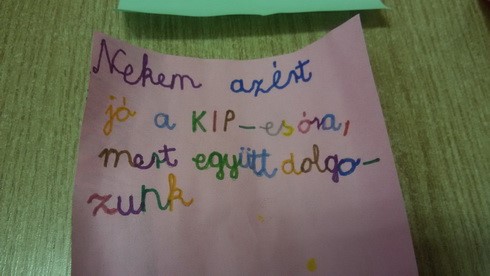 Nekem azért
jó a KIP-esóra,
mert együtt dolgo-
zunk